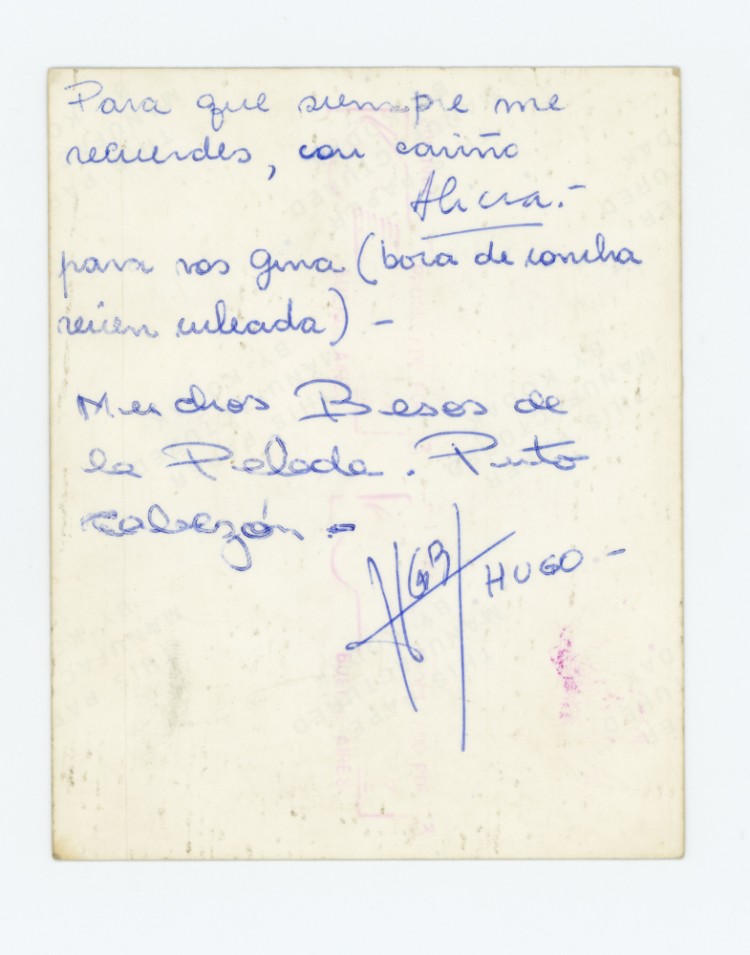 Para que siempre me
recuerdes, con cariño
Alicia.-
para vos Gina (boca de concha
recien culeada) -
Muchos Besos de
la Pelada. Puto
cabezón -
HGB HUGO -